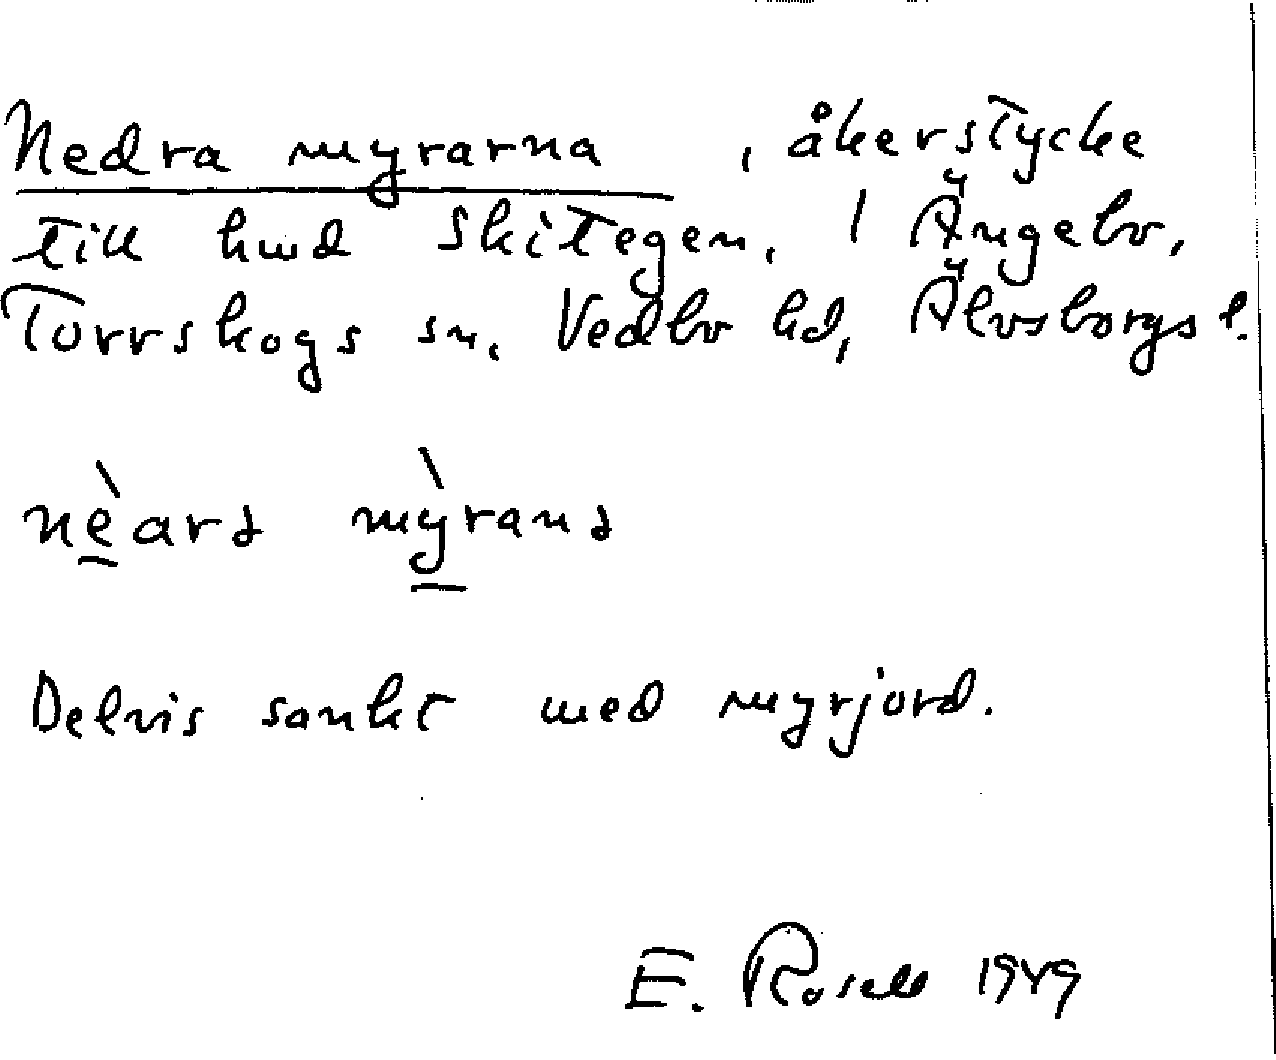 Nedra myrarna, åkerstycke
till hmd Skitegen, 1 Ängebo,
Torrskogs sn. Vedbo hd, Älvsborgs l.
nèarə mỳranə
Delvis sankt med myrjord.
E. Rosell 1949